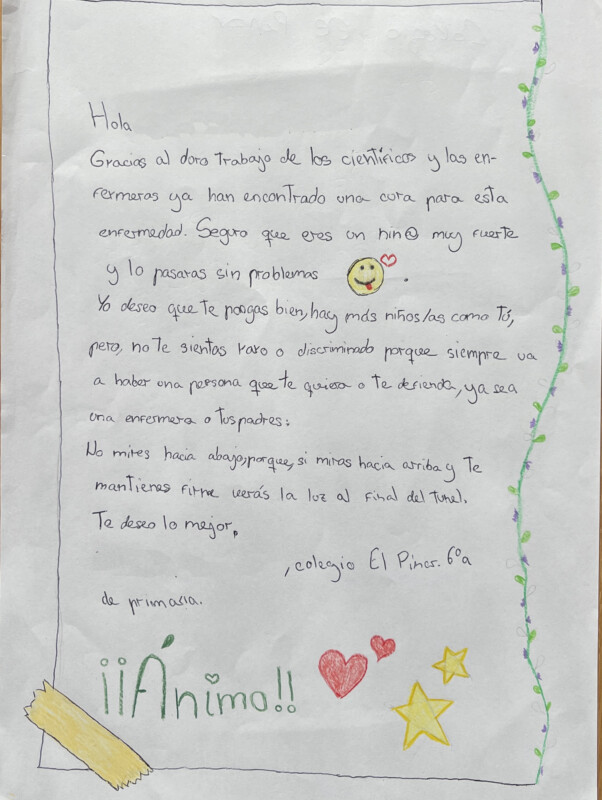 Hola
Gracias al doro trabajo de los científicos y las en-
fermeras ya han encontrado una cura para esta
enfermedad. Seguro que eres un niñ@ muy fuerte
y lo pasaras sin problemas .
Yo deseo que te pongas bien, hay más niños/as como tú,
pero, no te sientas raro o discriminado porque siempre va
a haber una persona que te quiera o te defienda, ya sea
una enfermera o tus padres.
No mires hacia abajo, porque, si miras hacia arriba y te
mantienes firme verás la luz al final del tunel.
Te deseo lo mejor,
, colegio El Pinar. 6ºa
de primaria.
¡¡Ánimo!!